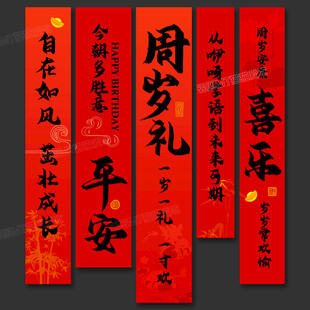 自在如风 茁壮成长
今朝多胜意
HAPPY BIRTHDAY
平安
周岁礼
一岁一礼 一寸欢
从咿呀学语到未来可期
周岁安康
喜乐
岁岁常欢愉